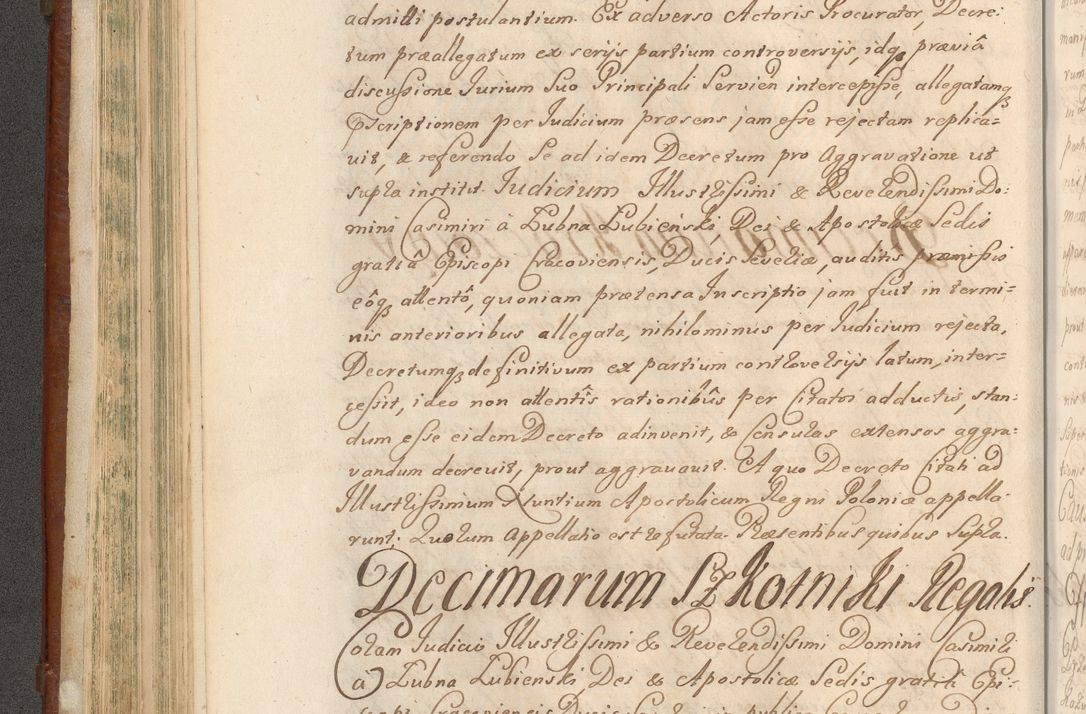 admitti postulantium. Ex adverso Actoris Procurator, Decre:
tum præallegatum ex serijs partium controversijs, idq præviâ
discussione Jurium Suo Principali Servien intercepisse, allegatamq
Inscriptionem per Judicium præsens jam esse rejectam replica=
vit, & referendo Se ad idem Decretum pro Aggravatione ut
supra institit. Judicium Illustrissimi & Reverendissimi Do:
mini Casimiri à Lubna Lubieński Dei & Apostolicæ Sedis
gratiâ Episcopi Cracoviensis, Ducis Severiæ, auditis præmissis
eôq attentô, quoniam prætensa Inscriptio jam fuit in termi=
nis anterioribus allegata, nihilominus per Judicium rejecta,
Decretumq definitivum ex partium controversijs latum, inter=
cessit, ideo non attentîs rationibûs per Citatos adductis, stan:
dum esse eidem Decreto adinvenit, & Censuras extensas aggra:
vandum decrevit, prout aggravavit. A quo Decreto Citati ad
Illustrissimum Nuntium Apostolicum Regni Poloniæ appella:
runt. Quorum Appellatio est refutata. Præsentibus quibus Supra.
Decimarum Szkotniki Regalis.
Coram Judicio Illustrissimi & Reverendissimi Domini Casimiri
à Lubna Lubienski, Dei & Apostolicæ Sedis gratiâ Epi:
scopi Cracoviensis Ducis